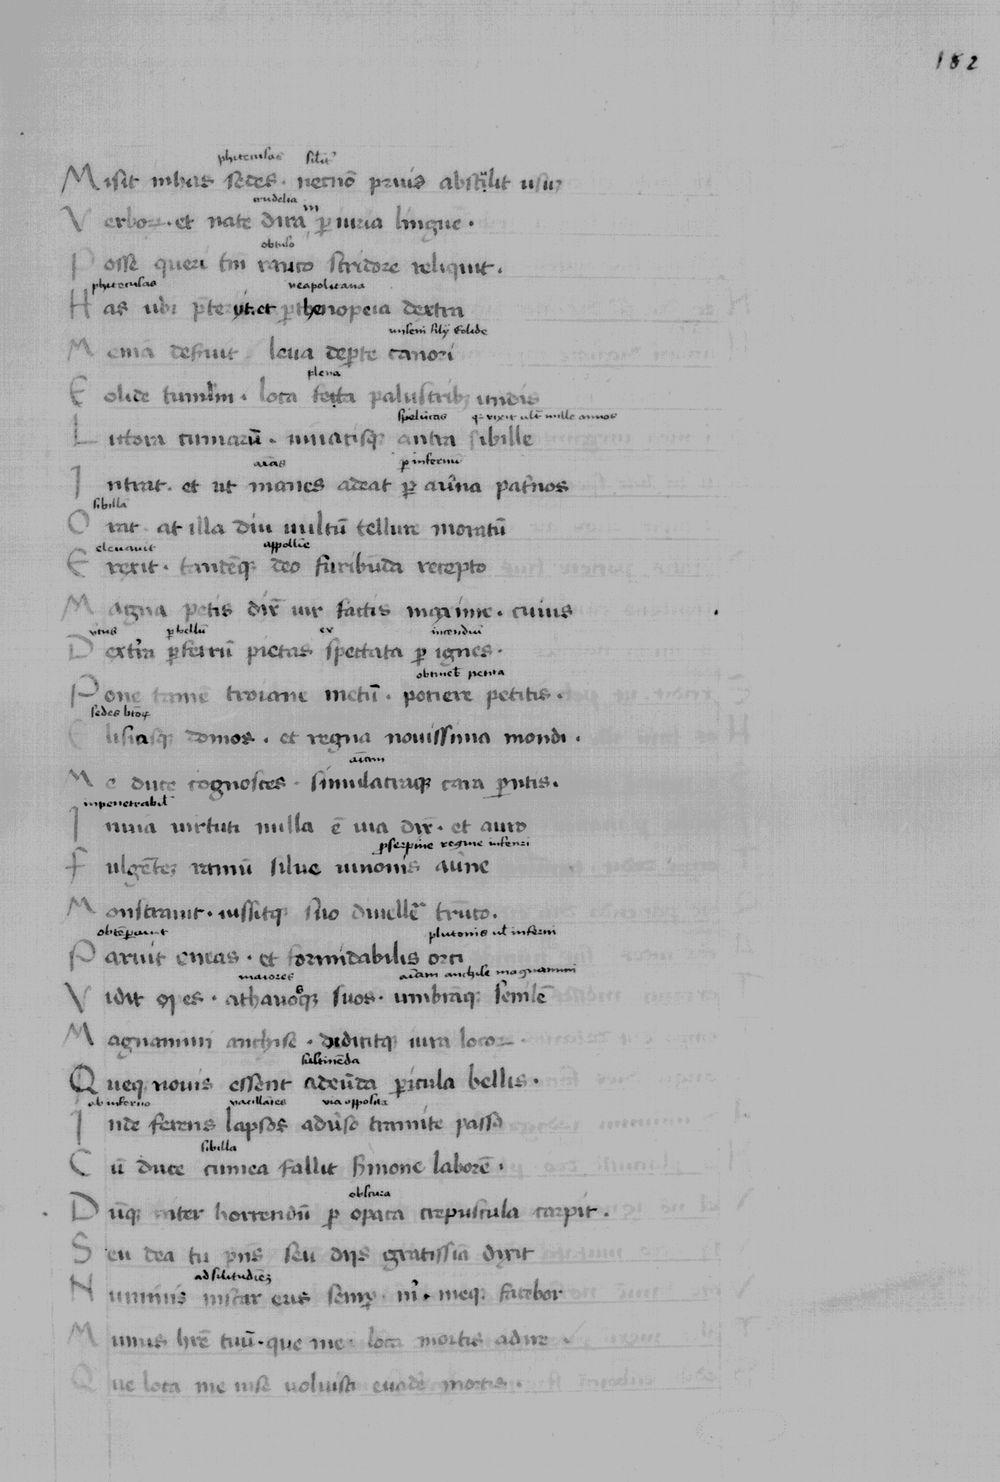 182
phitecusas silit'
Misit inhas sedes. necnō prius abstulit usuȝ
crudelia in
Verboꝝ. et nate dira ꝑiuria lingue.
obtuso
Posse queri tm̄ rauco stridore reliquit.
phitecusas neapolitana
Has ubi p̄terijt. et ꝑthenopeia dextra
miseni filij Eolide
Menia deseruit leua deꝑte canori
plena
Eolide tumulm. loca feta palustribȝ undis
speluncas q̄ vixit ultͣ mille annos
Littora cumarū. uiuacisqꝫ antra sibille
aīas ꝑ infernū
Intrat. et ut manes adeat ꝑ auˀna pat̄nos
sibilla
Orat. at illa diu uultū tellure moratū
eleuauit appolline
Erexit. tandēqꝫ deo furibūda recepto
Magna petis dix̄ uir factis maxime. cuius
virtus ꝑ bellū ex incendiū
Dextˀa ꝑ ferrū pietas spectata ꝑ ignes.
obtineb̄ petita
Pone tamē troiane metū. potiere petitis.
sedes btōꝝ
Elisiasqꝫ domos. et regna nouissima mondi.
aīam
Me duce cognosces. simulacraqꝫ cara ꝑntis.
inpenetrabil'
Inuia uirtuti nulla ē uia dix̄. et auro
ꝓserpine regine inferni
Fulgēteȝ ramū silue iunonis auˀne
Monstrauit. iussitqꝫ suo diuellēˀ trūco.
obtēꝑauit plutonis ul' inferni
Paruit eneas. et formidabilis orci
maiores aīam anchise magnanimi
Vidit opes. athauosqꝫ suos. umbrāqꝫ senilē
Magnanimi anchise. didicitqꝫ iura locoꝝ
sustinēda
Queqꝫ nouis essent adeūda ꝑicula bellis.
ab inferno vacillātes via opposita
Inde ferens lapsos aduˀso tramite passꝰ
sibilla
Cū duce cumea fallit sˀmone laborē.
obscura
Dūqꝫ inter horrendū ꝑ opaca crepuscula carpit.
Seu dea tu p̄ns seu dijs gratissīa dixit
ad silitudīeȝ
Numinis instar eris semꝑ. mˀ. meqꝫ fatebor
Munus hr̄e tuū. que me. loca mortis adire
Que loca me uise uoluisti euadē mortis.